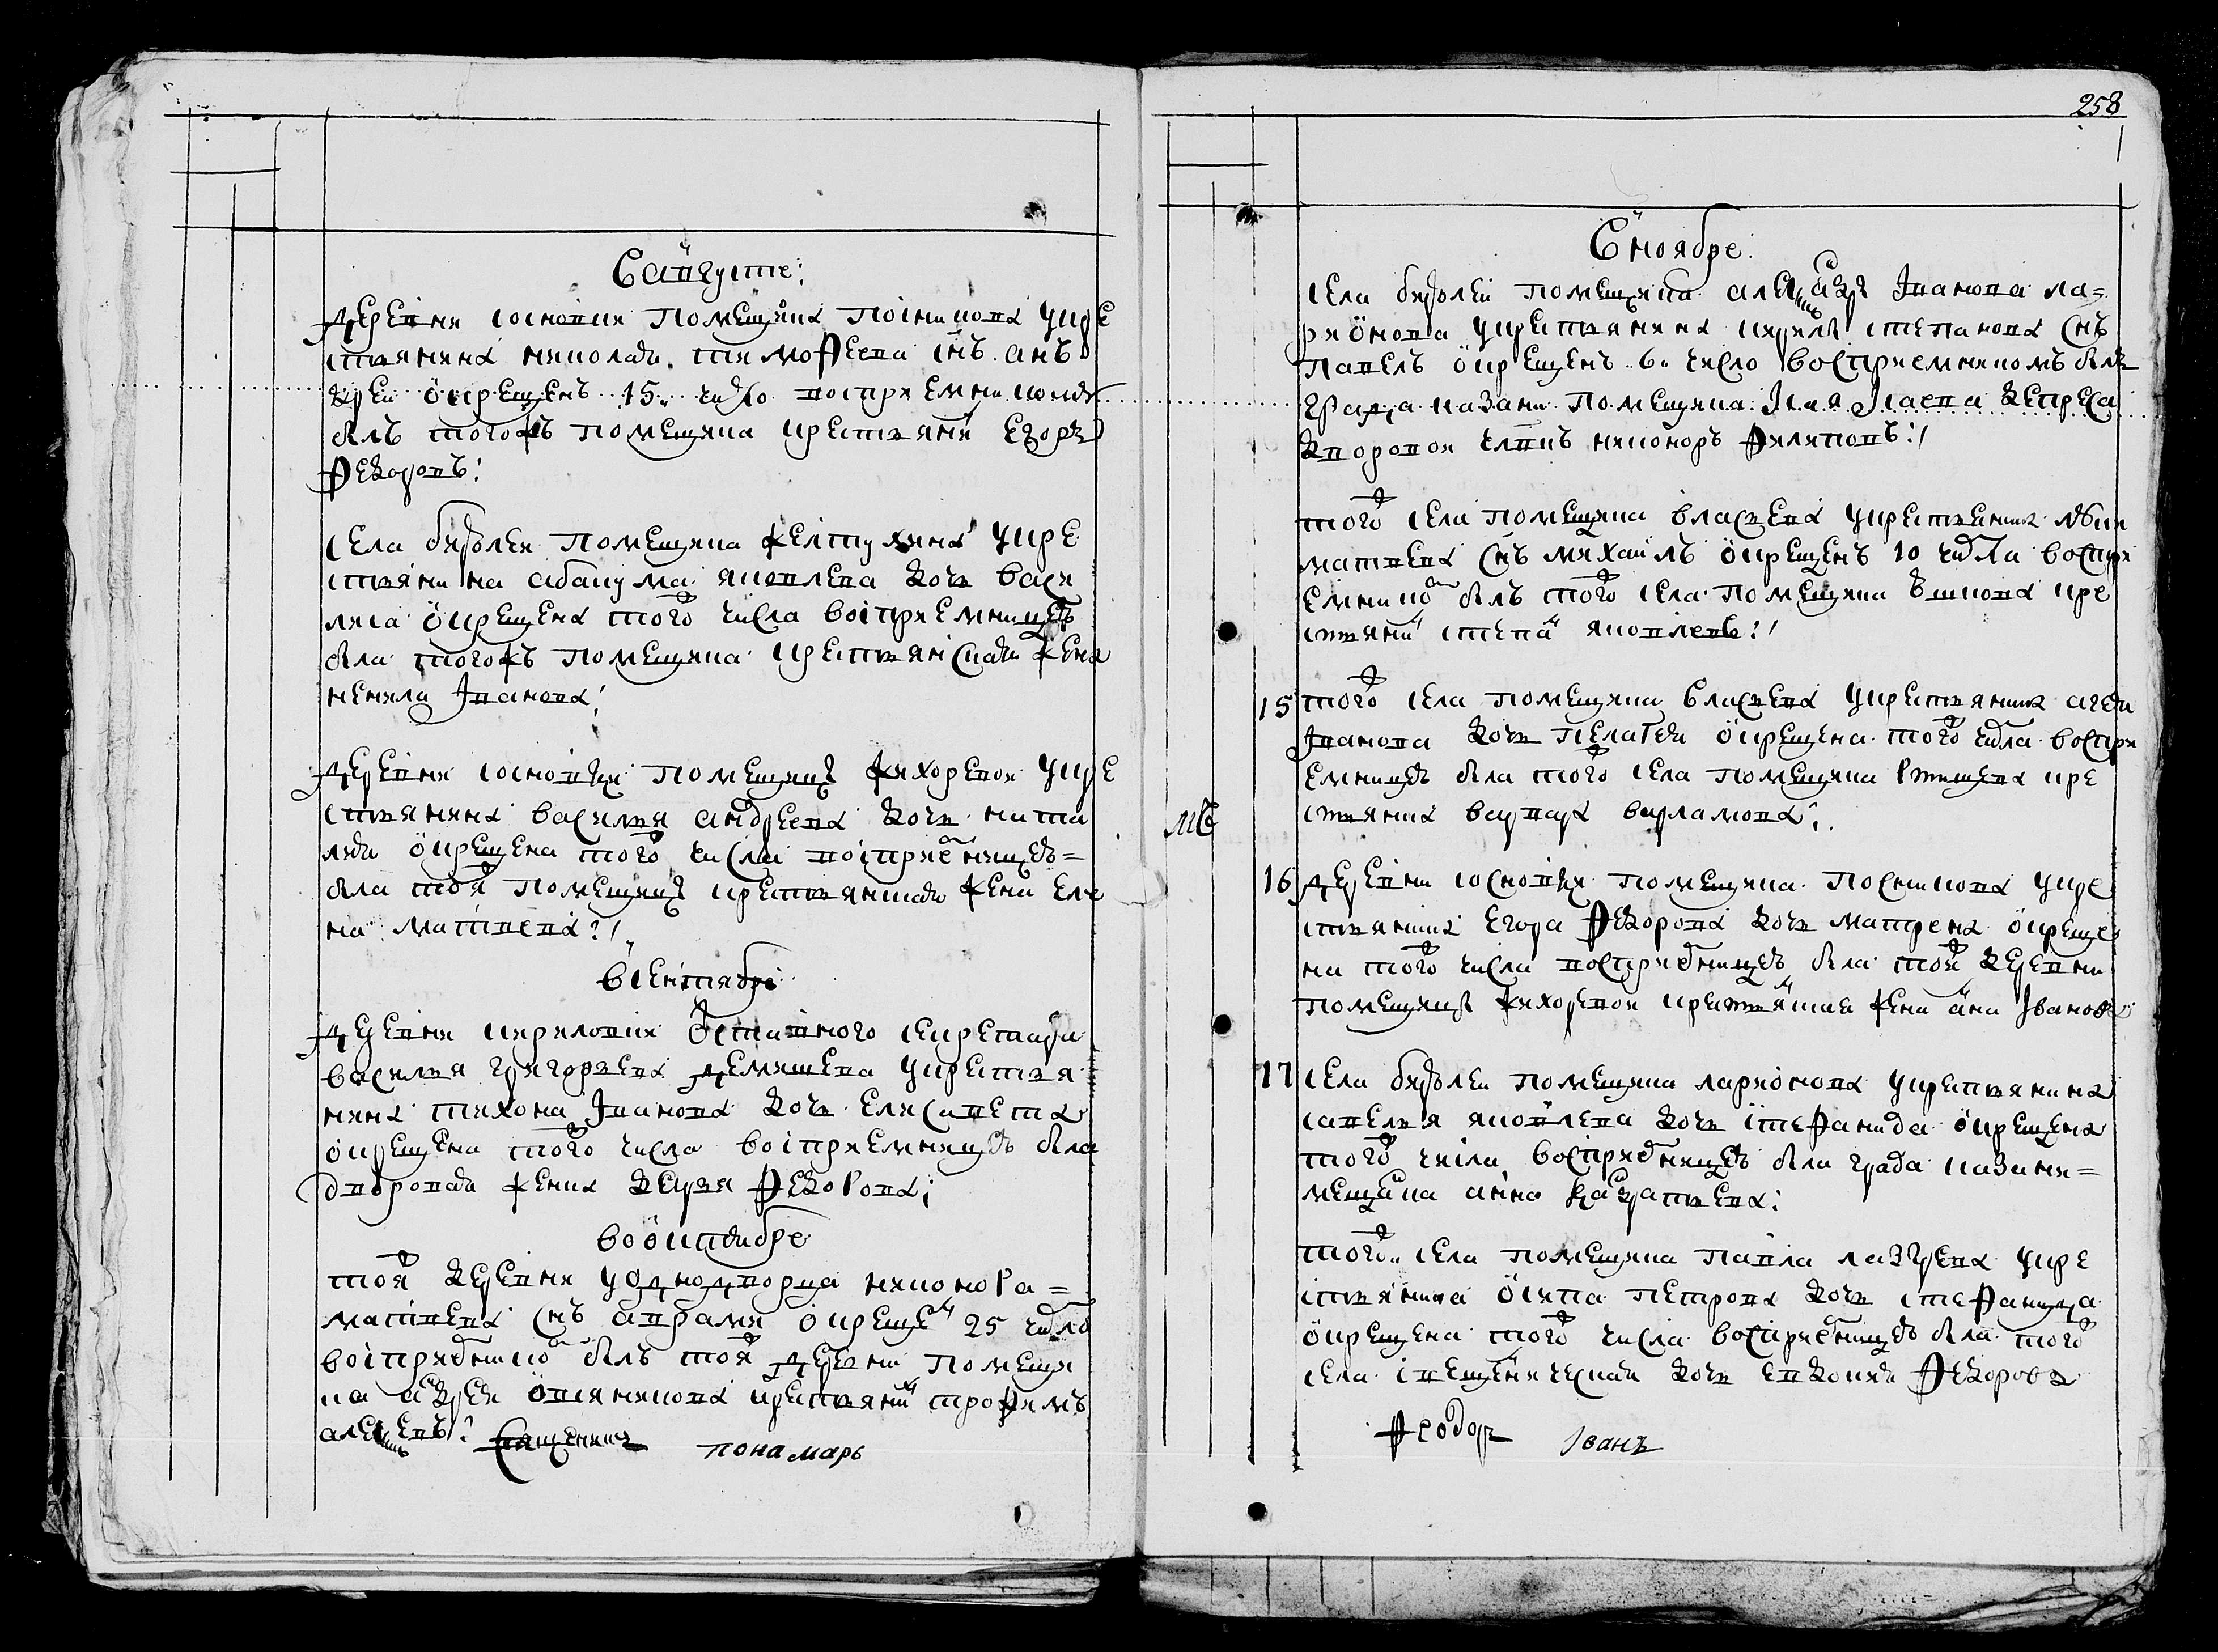 Въ августе:
Деревни сосновки помещика посникова у кре
стьянина николая тимофеева снъ ан
дреи окрещенъ 15 число восприемникомъ
былъ тогожъ помещика крестьянинъ Егоръ
Федоровъ:
села бурълеи помещика желтухина у кре
стьянина абакума яковлева дочь васи
лиса окрещена того числа восприемницею
была тогожъ помещика крестьянская жена
ненила Iванова:
Деревни сосновки помещицы жихоревои у кре
стьянина василья андреева дочь ната
лья окрещена того числа восприемницею
была тоя помещицы крестьянская жена еле
на матвеева:
в сентябре
Деревни кириловки отставного секретаря
василья григорьева демяшева у крестья
нина тихона Iванова дочь елисавета
окрещена того числа восприемницею была
дворовая женка дарья Федорова:
во октябре
тоя деревни у однодворца никонора
матвеева снъ аврамъ окрещенъ 25 число
восприемникомъ былъ тоя деревни помещи
ка андрея крестьянинъ трофимъ
алексеевъ: Священникъ пономарь
258
В ноябре:
села бурълеи помещика александра Iванова ла
рионова у крестьянина кирилы степанова снъ
павелъ окрещенъ 6 число восприемникомъ былъ
града казани помещика
дворовои члвкъ никоноръ Филиповъ:
того села помещика власьева у крестьянина
матвеева снъ михаилъ окрещенъ 10 числа воспри
емникомъ былъ того села помещика кре
стьянинъ степанъ яковлевъ:
15 того села помещика власьева у крестьянина агея
Iванова дочь пелагея окрещена того числа воспри
емницею была того села помещика кре
стьянина варвара варламова:
16 деревни сосновки помещика посникова у кре
стьянина Егора Федорова дочь матрена окреще
на того числа восприемницею была тоя деревни
помещицы жихоревои крестьянина жена анна Iванова
17 села бурълеи помещика ларионова у крестьянина
савелья яковлева дочь стефанида окрещена
того числа восприемницею была града казани
мещанка анна
того села помещика павла лазарева у кре
стьянина осипа петрова дочь стефанида
окрещена того числа восприемницею была того
села священническая дочь евдокия Федорова
Феодоръ Iванъ